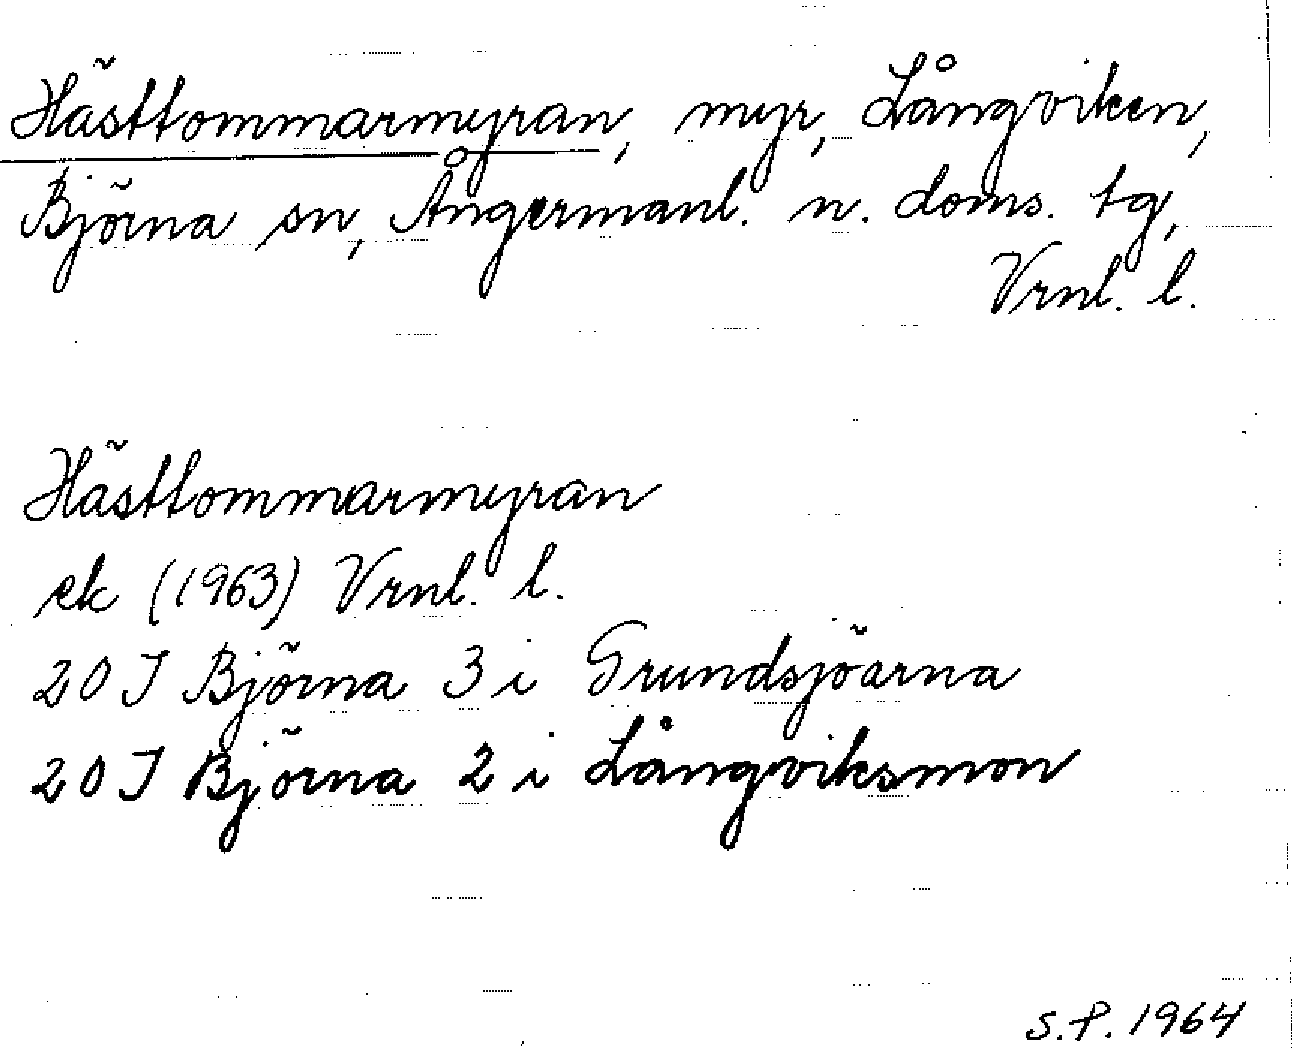 Hästtommarmyran, myr, Långviken,
Björna sn, Ångermanl. n. doms. tg,
Vrnl. l.
Hästtommarmyran
ek (1963) Vrnl. l.
20 J Björna 3 i Grundsjöarna
20 J Björna 2 i Långviksmon
S.P. 1964